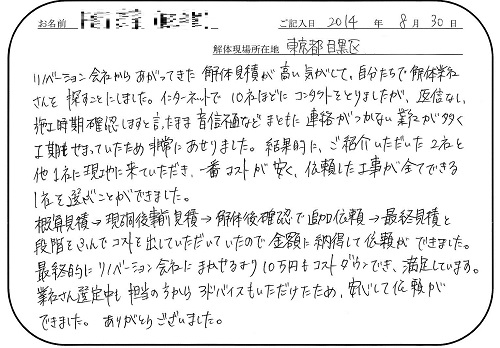 お名前 ご記入日 2014 年 8 月 30 日
解体現場所在地 東京都目黒区
リノベーション会社からあがってきた解体見積が高い気がして、自分たちで解体業社
さんを探すことにしました。インターネットで10社ほどにコンタクトをとりましたが、返信なし、
施工時期確認しますと言ったまま音信不通などまともに連絡がつかない業社が多く
工期もせまっていたため非常にあせりました。結果的に、ご紹介いただいた2社と
他1社に現地に来ていただき、一番コストが安く、依頼した工事が全てできる
1社を選ぶことができました。
概算見積→現調後事前見積→解体後確認で追加依頼→最終見積と
段階をふんでコストを出していただいていたので金額に納得して依頼ができました。
最終的にリノベーション会社にまかせるより10万円もコストダウンでき、満足しています。
業社さん選定中も担当の方からアドバイスもいただけたため、安心して依頼が
できました。ありがとうございました。